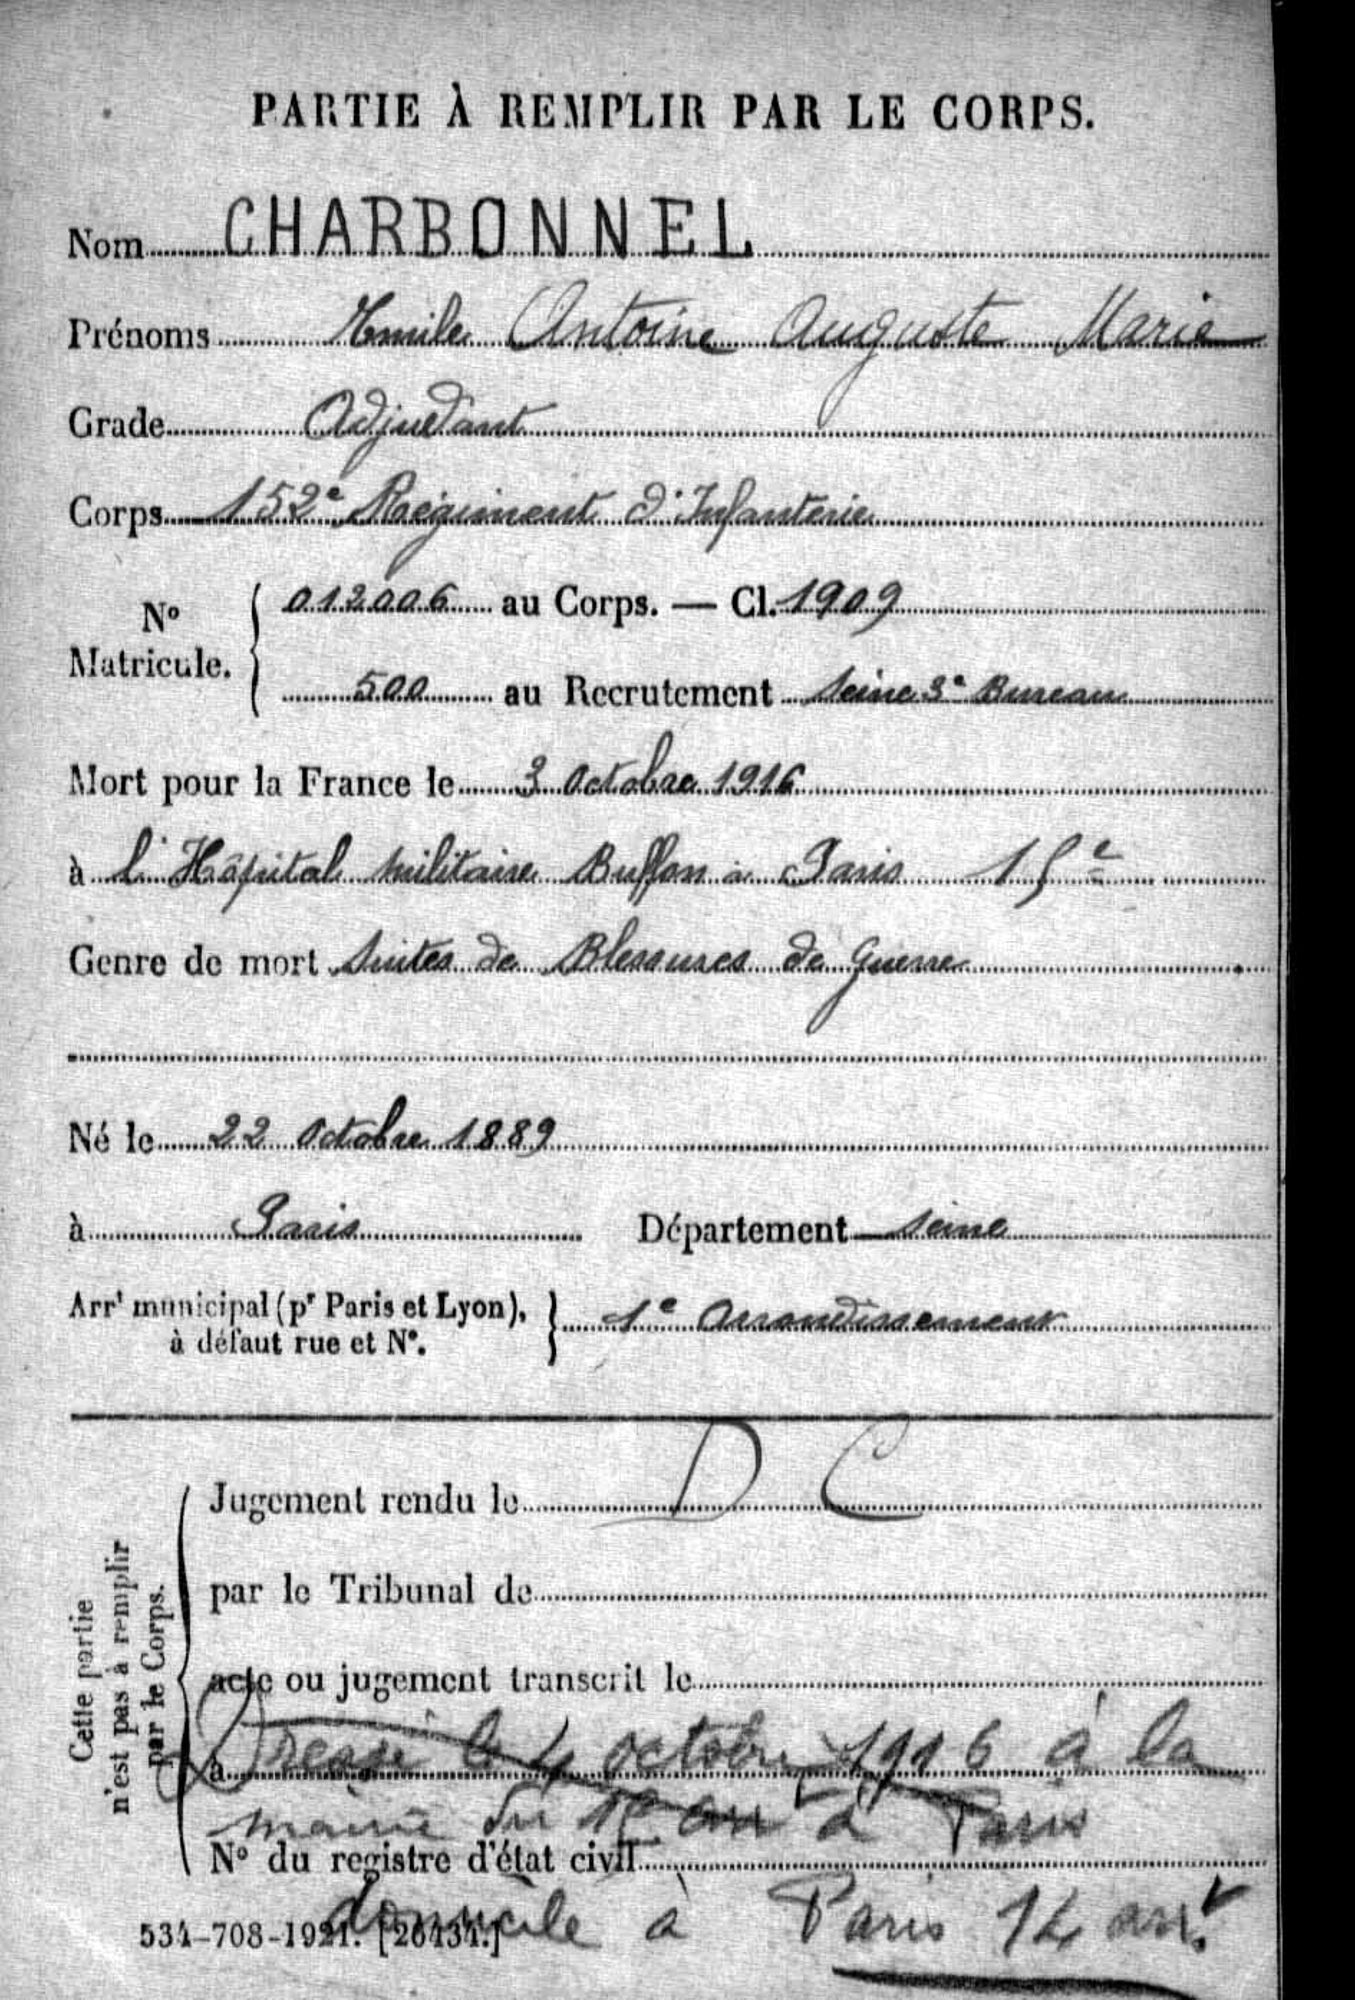 PARTIE À REMPLIR PAR LE CORPS.
Nom CHARBONNEL
Prénoms Emile Antoine Auguste Marie
Grade Adjudant
Corps 152e Régiment d'Infanterie
No Matricule. { 012006 au Corps. — Cl. 1909
500 au Recrutement Seine 3e Bureau
Mort pour la France le 3 Octobre 1916
à l'Hôpital militaire Buffon à Paris 15e
Genre de mort Suites de Blessures de Guerre
Né le 22 Octobre 1889
à Paris Département Seine
Arrt municipal (pr Paris et Lyon), à défaut rue et No. } 1e Arrondissement
D C
Cette partie n'est pas à remplir par le Corps.
Jugement rendu le
par le Tribunal de
acte ou jugement transcrit le
à Dressé le 4 octobre 1916 à la
mairie du 15e arrt à Paris
No du registre d'état civil
domicile à Paris 14 arrt
534-708-1921. [26434.]